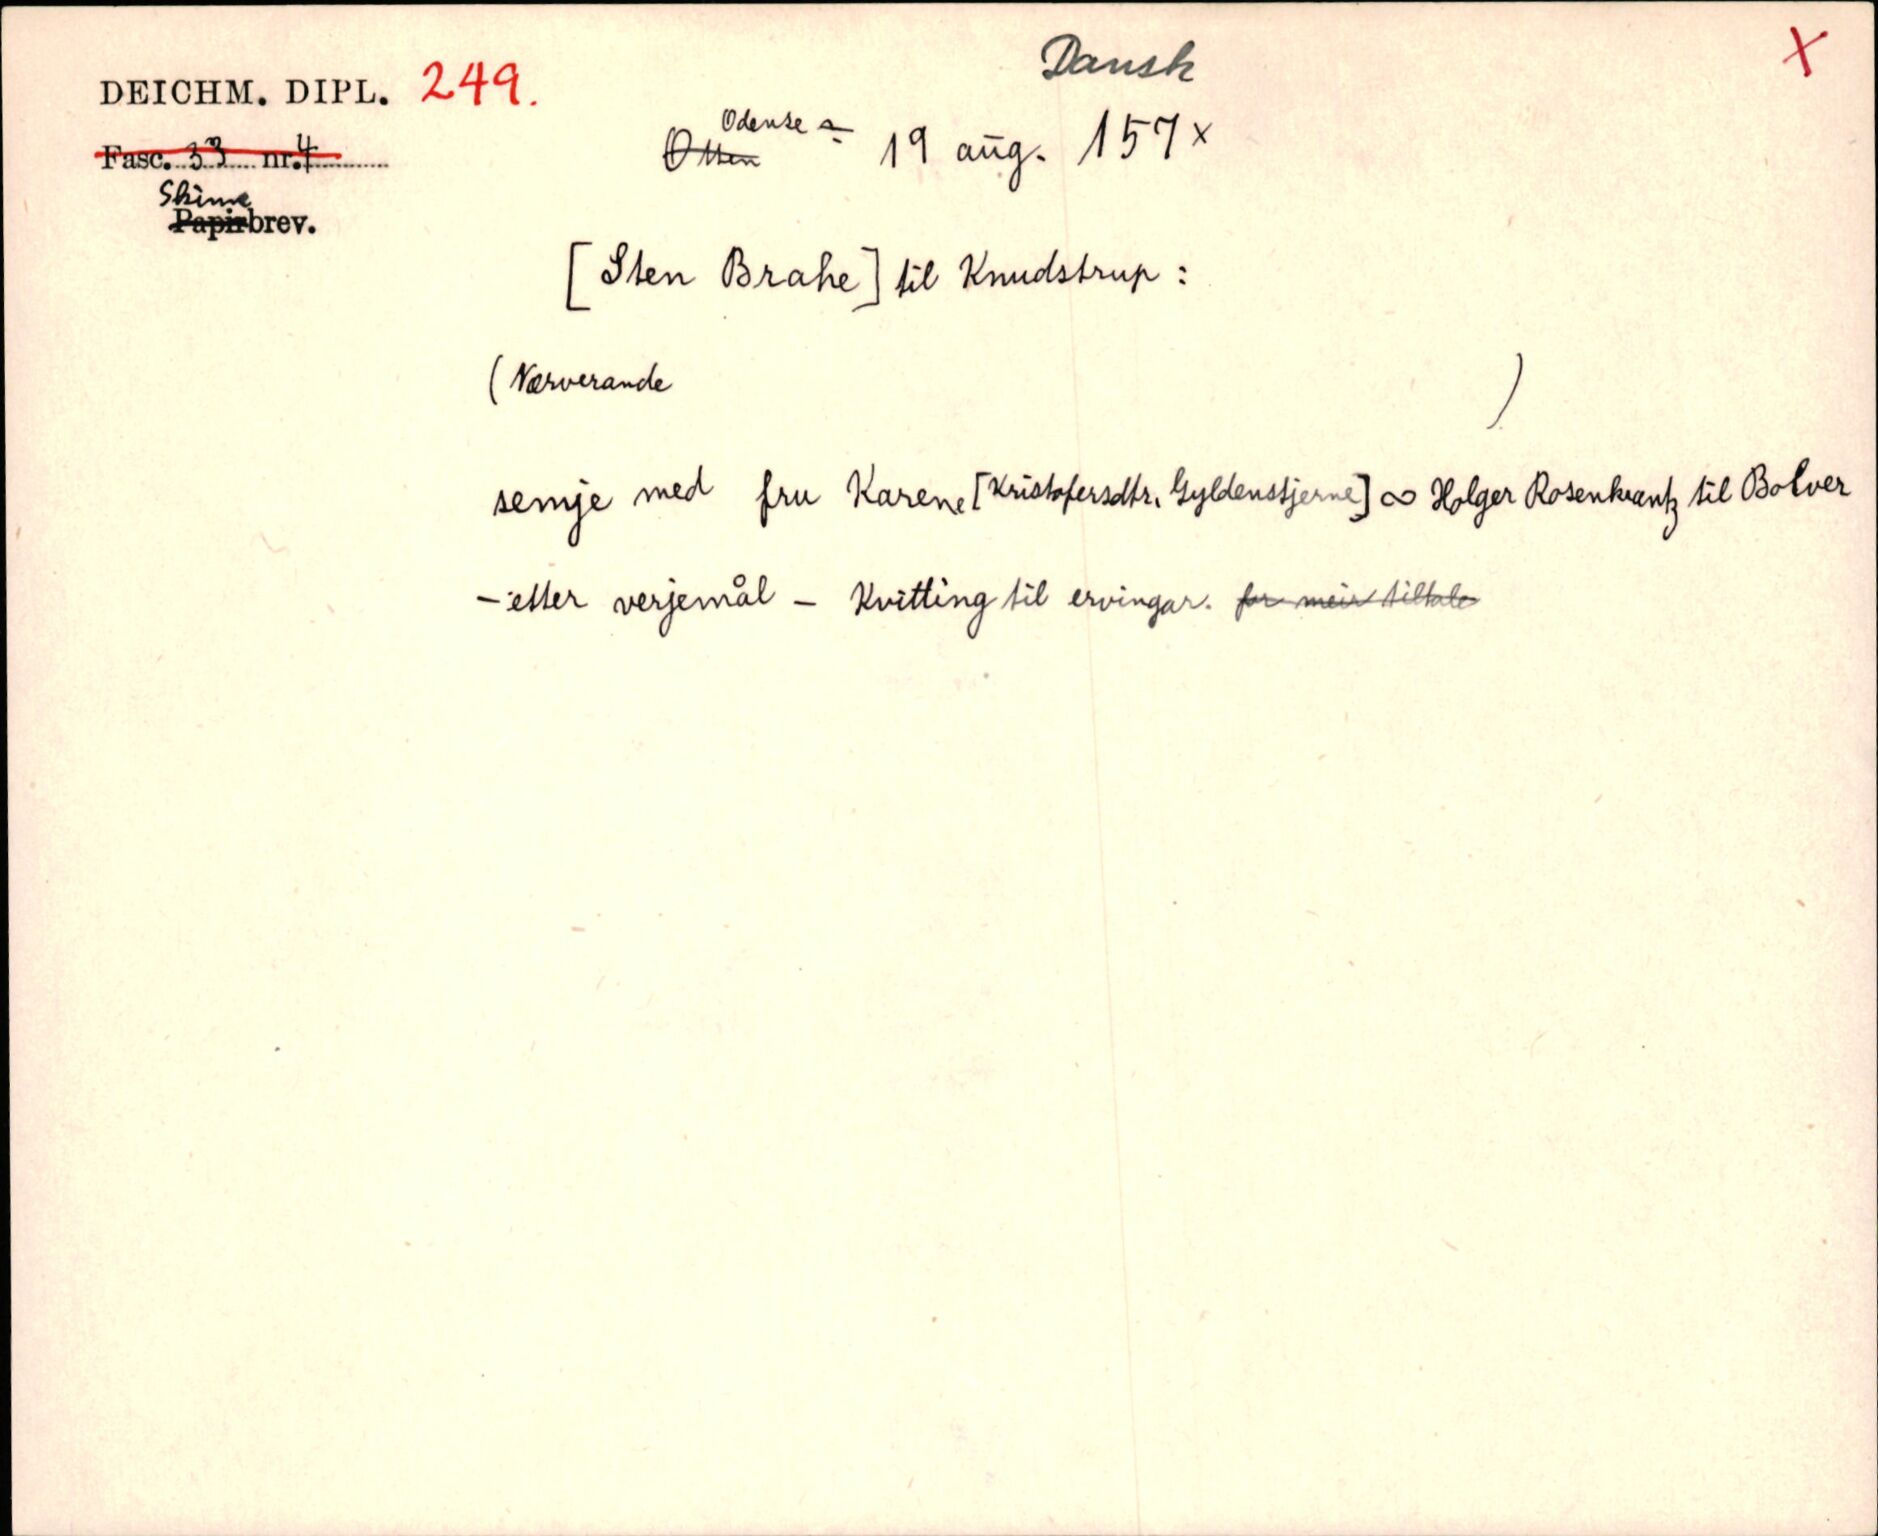 Dansk X
DEICHM. DIPL. 249.
Odense
Otten 19 aug. 157x
Fasc. 33 nr. 4
Skinn
Papirbrev.
[Sten Brahe] til Knudstrup:
(Nærverande )
semje med fru Karene [Kristofersdtr. Gyldenstjerne] ∞ Holger Rosenkrantz til Bolver
- etter verjemål - Kvitting til ervingar. for meir tiltale